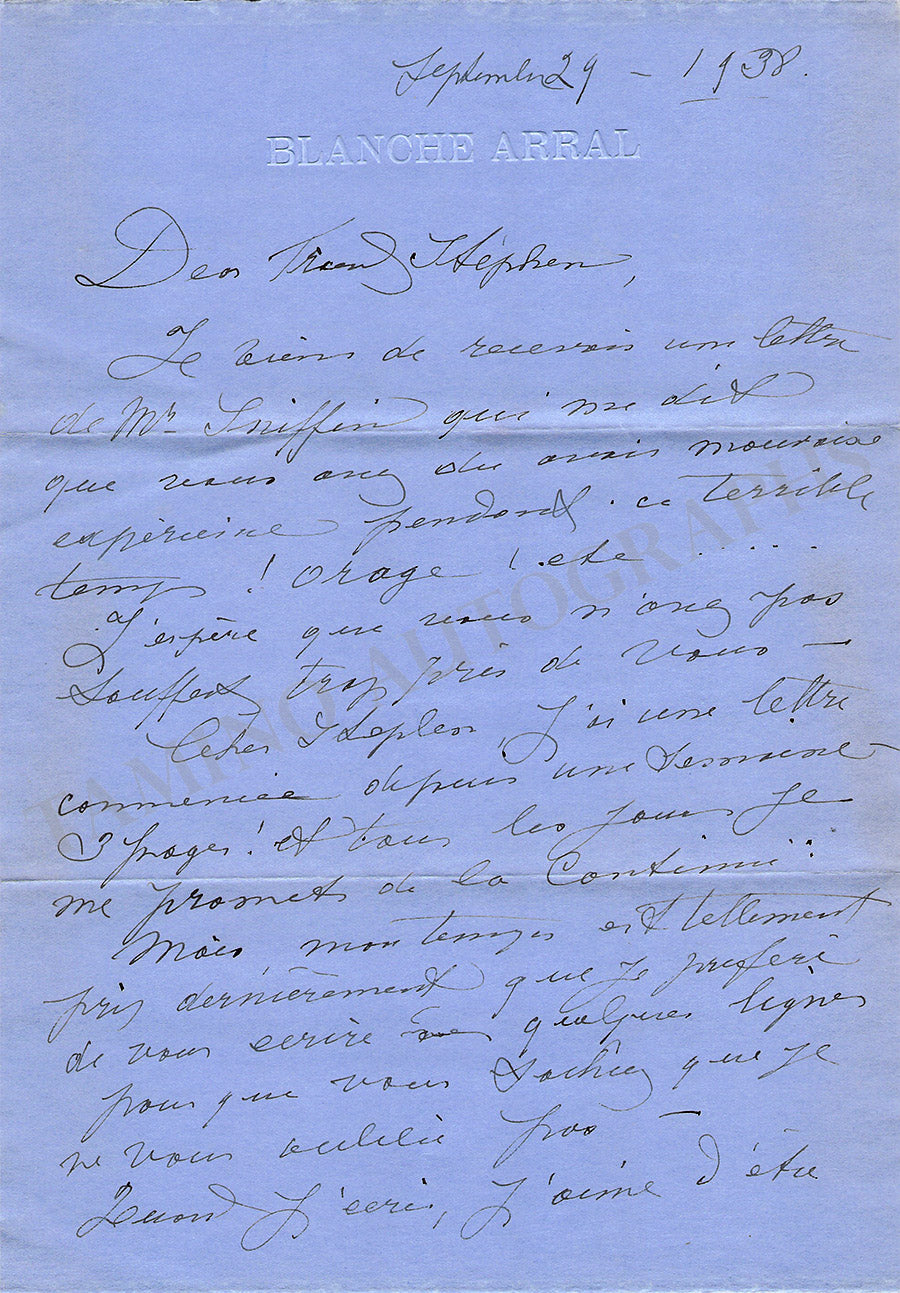 September 29 - 1938.
BLANCHE ARRAL
Dear Friend Stéphen,
Je viens de recevois une lettre
de Mr Sniffin qui me dit
que vous avez du avois mauvaise
expérience pendant ce terrible
temps ! Orage ! etc .....
J'espère que vous n'avez pas
Souffert trop près de vous -
Cher Stephen, J'ai une lettre
commencée depuis une Semaine -
3 pages ! et tous les jours je
me promets de la Continuer :
Mais, mon temps est tellement
pris dernièrement que je préfère
de vous ecrire quelques lignes
pour que vous Sachiez que je
ne vous oublie pas -
Quand J'écris, J'aime d'être
TAMINO AUTOGRAPHS